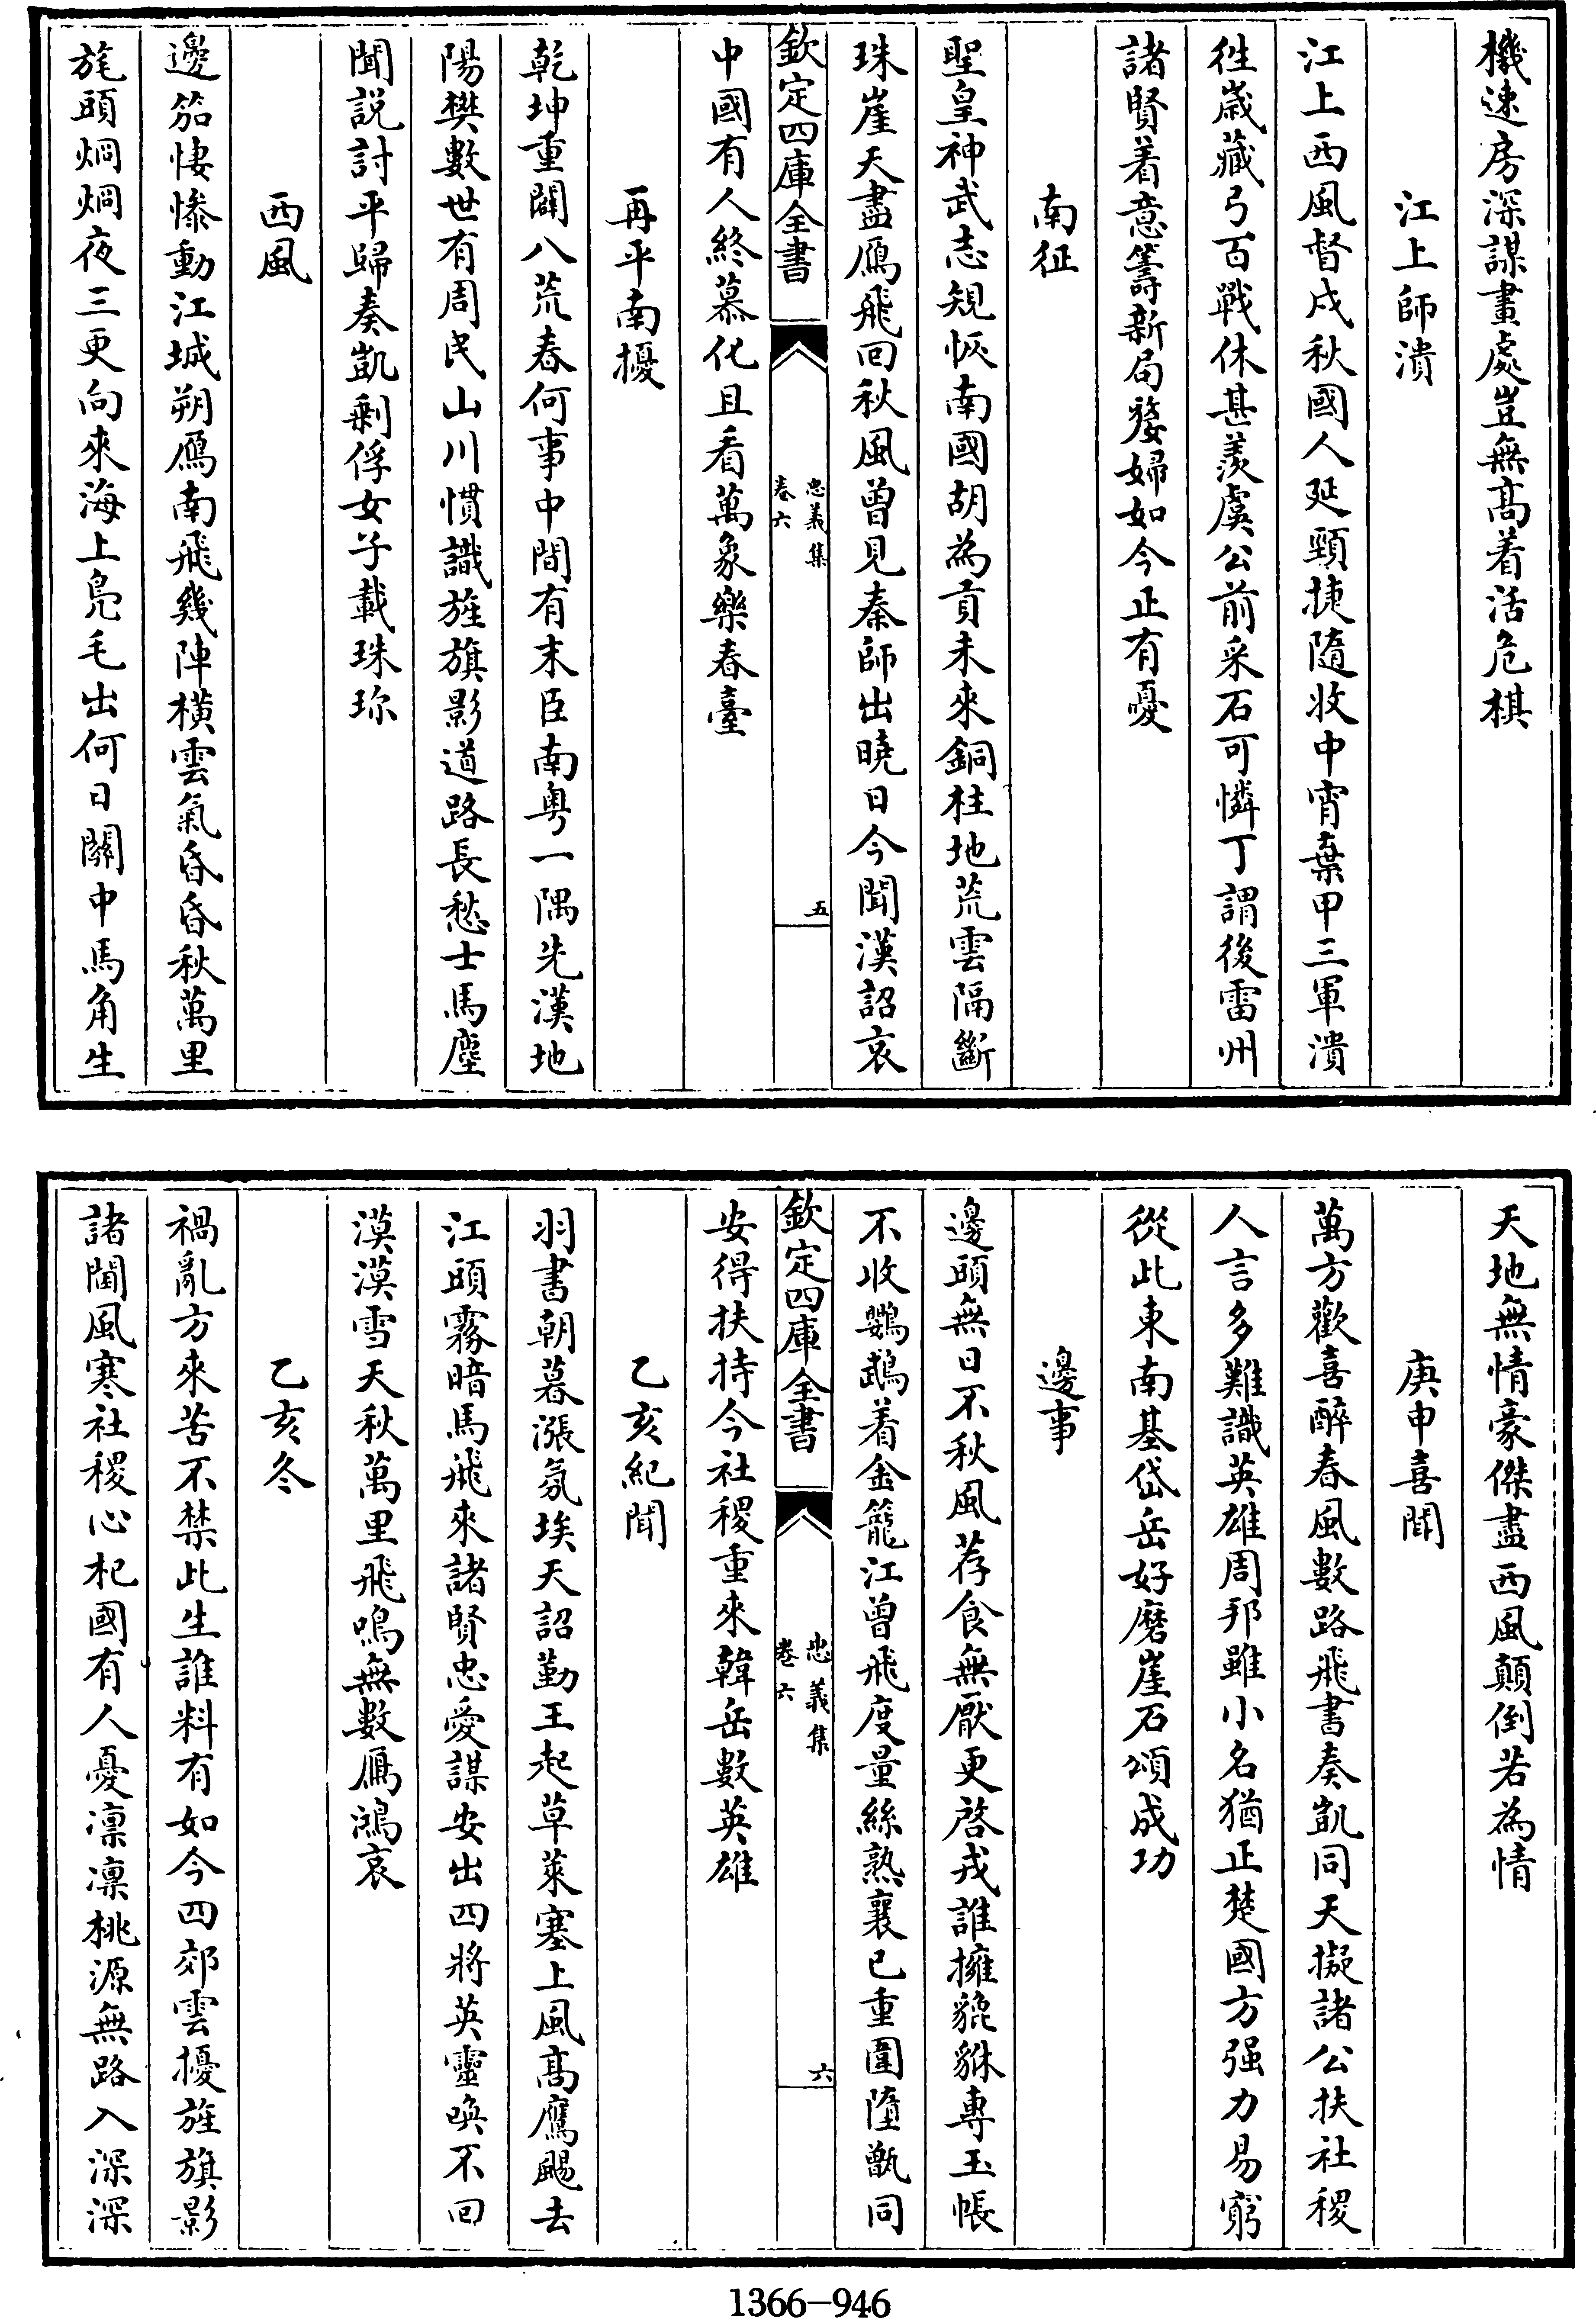 機速房深謀畫處豈無髙着活危棋
江上師潰
江上西風督戍秋國人延頸捷隨收中宵棄甲三軍潰
徃歲藏弓百戰休甚羨虞公前采石可憐丁謂後雷州
諸賢着意籌新局嫠婦如今正有憂
南征
聖皇神武志規恢南國胡為貢未來銅柱地荒雲隔斷
珠崖天盡鴈飛回秋風曾見秦師出曉日今聞漢詔哀
欽定四庫全書
忠義集
卷六
五
中國有人終慕化且看萬象樂春臺
再平南擾
乾坤重闢八荒春何事中間有末臣南粤一隅先漢地
陽樊數世有周民山川慣識旌旗影道路長愁士馬塵
聞説討平歸奏凱剩俘女子載珠珎
西風
邊笳悽慘動江城朔鴈南飛幾陣横雲氣昏昏秋萬里
旄頭烱烱夜三更向來海上鳬毛出何日關中馬角生
天地無情豪傑盡西風顛倒若為情
庚申喜聞
萬方歡喜醉春風數路飛書奏凱同天擬諸公扶社稷
人言多難識英雄周邦雖小名猶正楚國方强力易窮
從此東南基岱岳好磨崖石頌成功
邊事
邊頭無日不秋風荐食無厭更啓戎誰擁貔貅專玉帳
不收鸚鵡着金籠江曾飛度量絲熟襄已重圍墮甑同
欽定四庫全書
忠義集
卷六
六
安得扶持今社稷重來韓岳數英雄
乙亥紀聞
羽書朝暮漲氛埃天詔勤王起草萊塞上風髙鷹颺去
江頭霧暗馬飛來諸賢忠愛謀安出四將英靈喚不回
漠漠雪天秋萬里飛鳴無數鴈鴻哀
乙亥冬
禍亂方來苦不禁此生誰料有如今四郊雲擾旌旗影
諸閫風寒社稷心杞國有人憂凛凛桃源無路入深深
1366-946